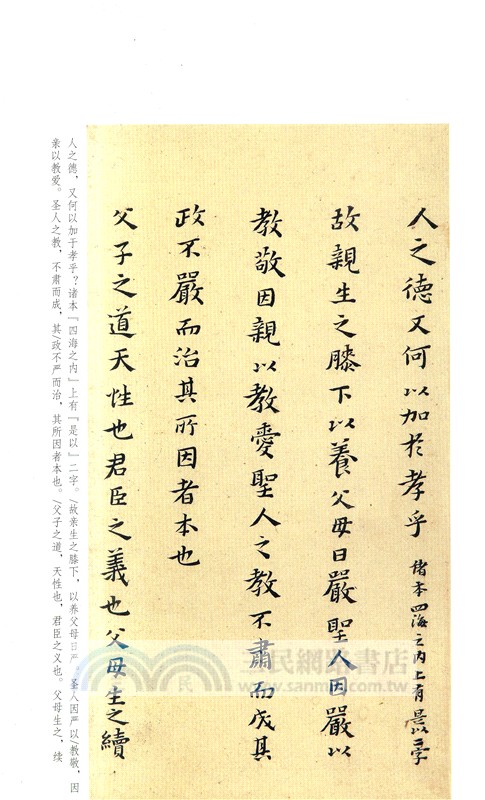 人之德又何以加於孝乎 諸本四海之内上有是以二字
故親生之膝下以養父母日嚴聖人因嚴以
教敬因親以教愛聖人之教不肅而成其
政不嚴而治其所因者本也
父子之道天性也君臣之義也父母生之續
人之德，又何以加于孝乎？诸本「四海之内」上有「是以」二字。/故亲生之膝下，以养父母日严，圣人因严以/教敬，因
亲以教爱。圣人之教，不肃而成，其/政不严而治，其所因者本也。/父子之道，天性也，君臣之义也。父母生之，续
三民網路書店
民
www.sanmin.com.tw